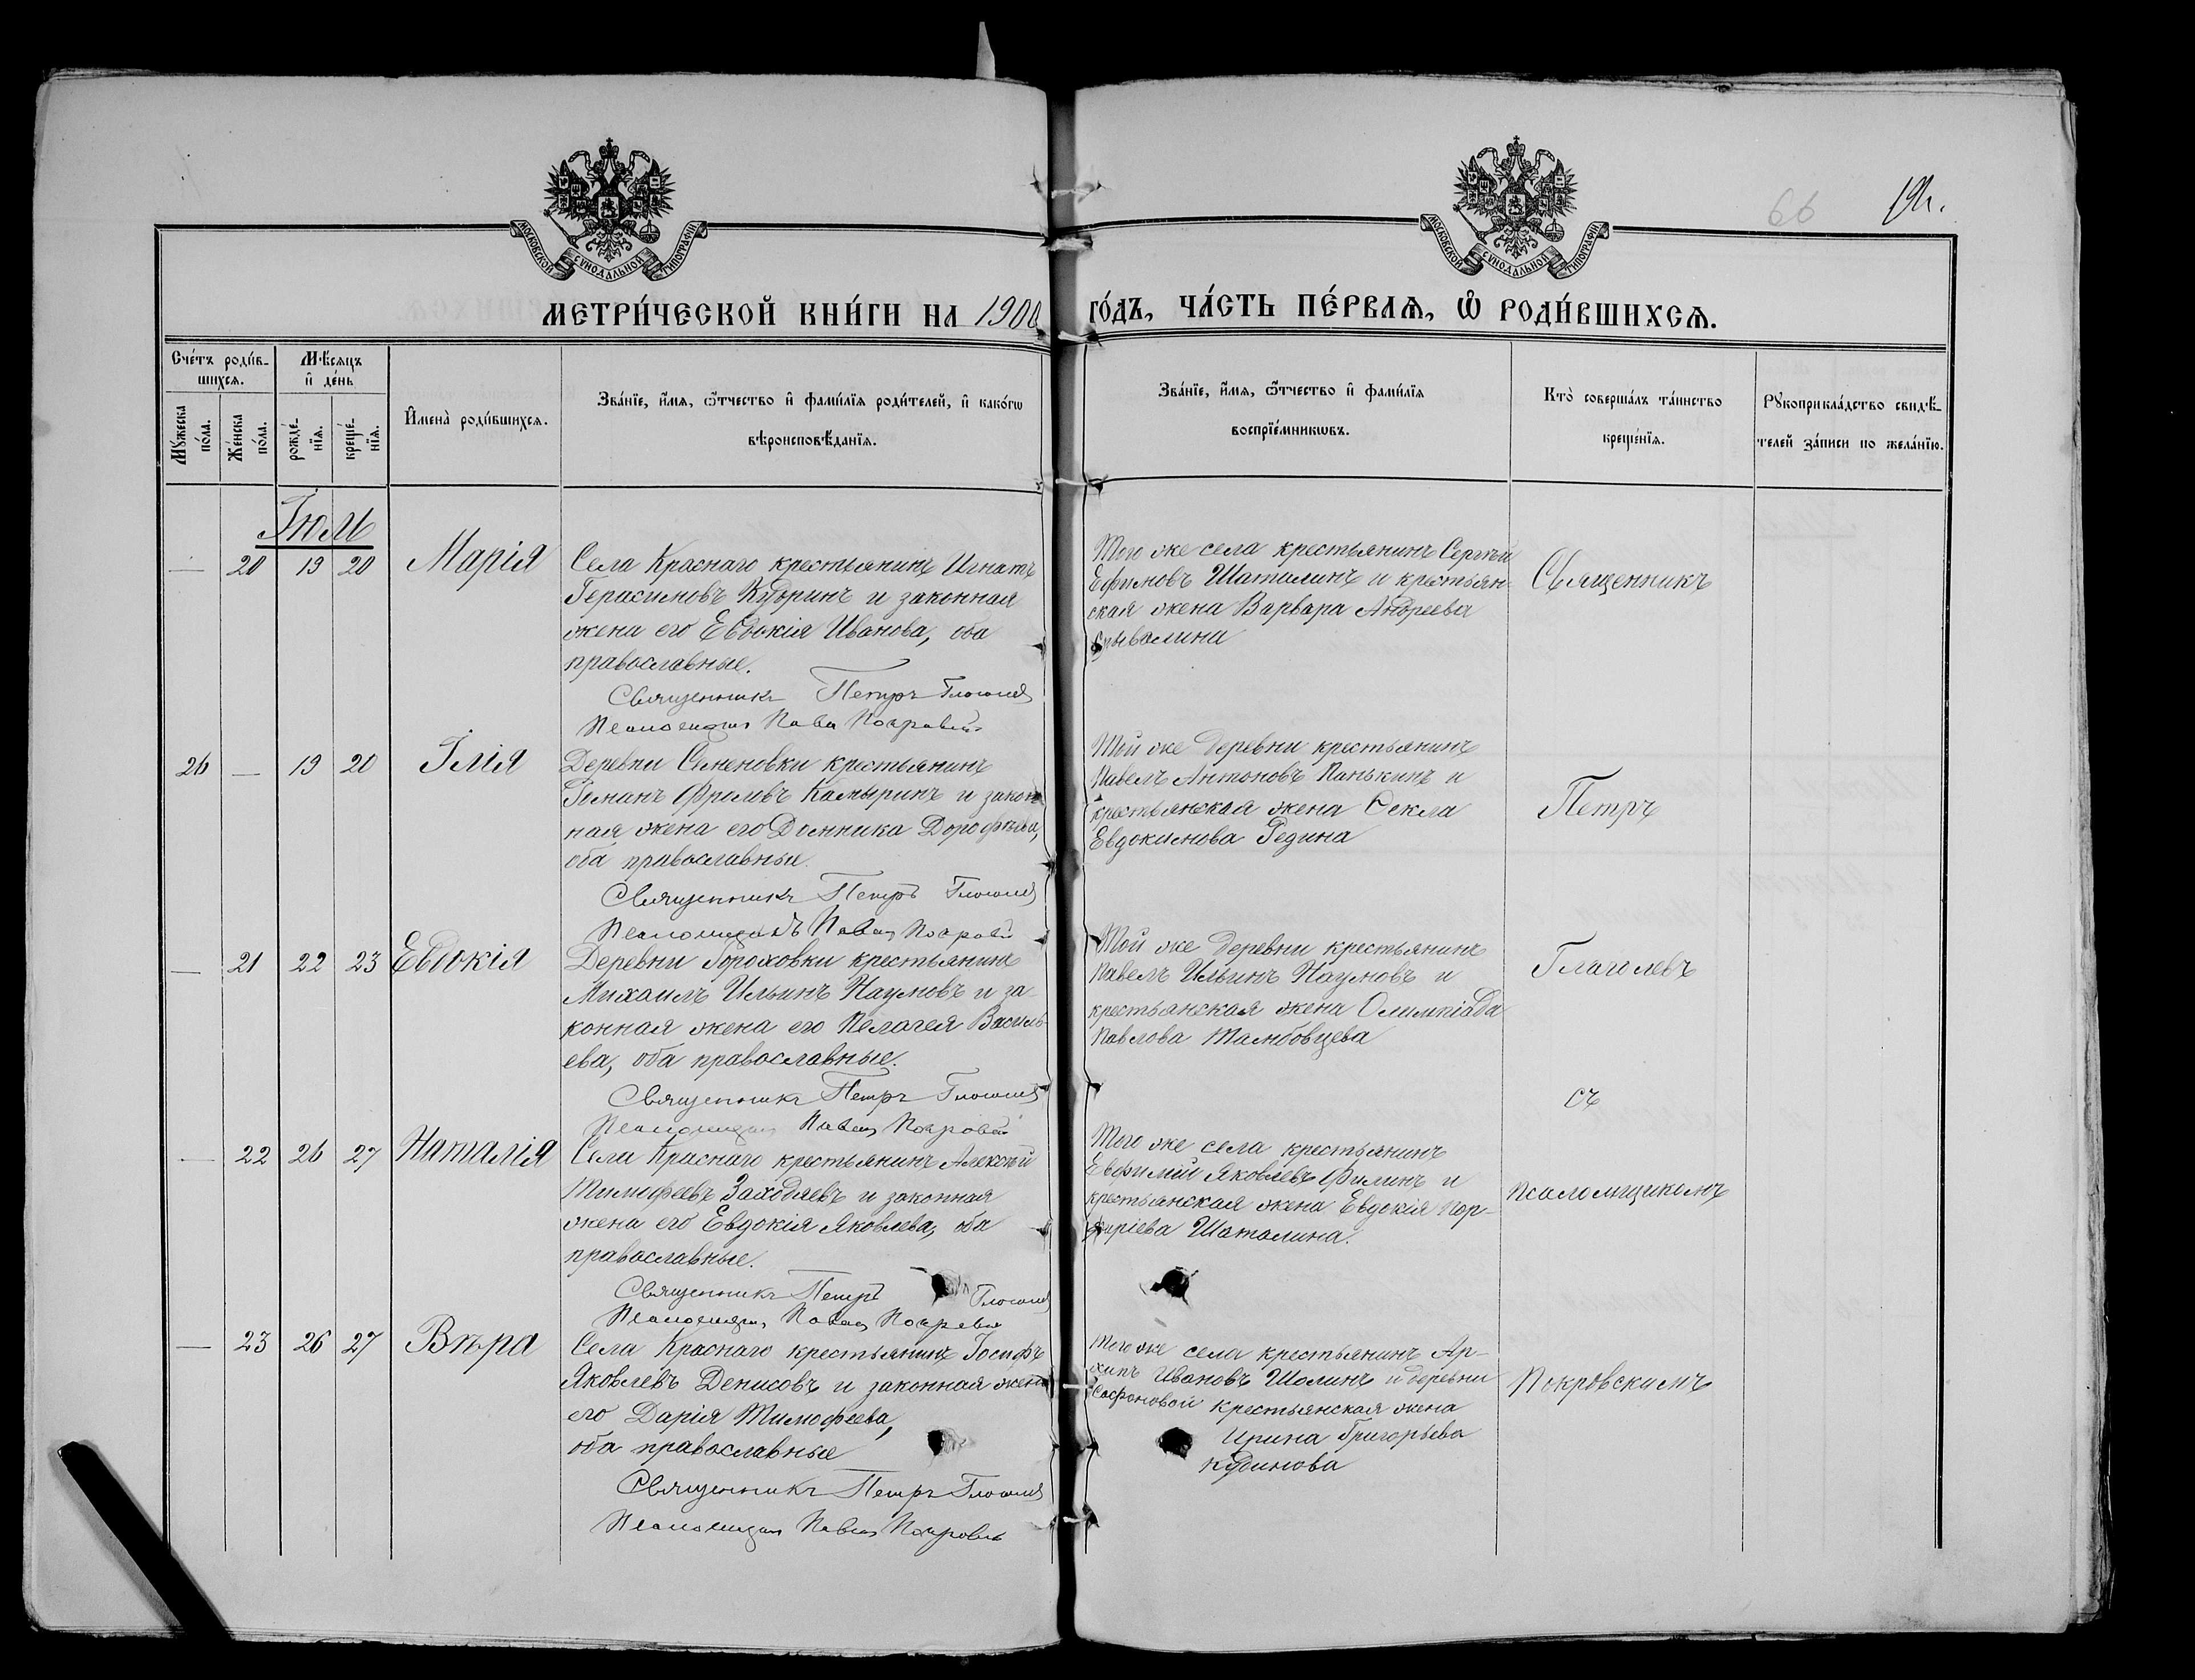 66
МОСКОВСКОЙ СѴНОДАЛЬНОЙ ТИПОГРАФІИ
МОСКОВСКОЙ СѴНОДАЛЬНОЙ ТИПОГРАФІИ
МЕТРИ́ЧЕСКОЙ КНИ́ГИ НА 1900 ГО́ДЪ, ЧА́СТЬ ПЕ́РВАѦ, Ѡ РОДИ́ВШИХСѦ.
Сче́тъ роди́в-
шихсѧ.
Мѣсяцъ
и де́нь
Мꙋжеска по́ла.
Же́нска по́ла.
рожде́-нїѧ.
креще́-нїѧ.
Имена̀ роди́вшихсѧ.
Зва́нїе, и́мѧ, ѻ҆́тчество и фами́лїѧ роди́телей, и како́гѡ
вѣроисповѣ́данїѧ.
Зва́нїе, и́мѧ, ѻ҆́тчество и фами́лїѧ
воспрїе́мникѡвъ.
Кто̀ соверша́лъ та́инство
креще́нїѧ.
Рꙋкоприкла́дство свидѣ́-
телей за́писи по жела́нїю.
Іюль
— 20 19 20 Марія
Села Краснаго крестьянинъ Игнатъ
Герасимовъ Кудринъ и законная
жена его Евдокія Иванова, оба
православные.
Священникъ Петръ Глаголев
Псаломщикъ Павел Покровскій
Того же села крестьянинъ Сергѣй
Ефимовъ Шаталинъ и крестьян-
ская жена Варвара Андреева
Священникъ
26 — 19 20 Илія
Деревни Семеновки крестьянинъ
Романъ Фроловъ Камыринъ и закон-
ная жена его Домника Дорофѣева,
оба православные.
Священникъ Петръ Глаголев
Псаломщикъ Павел Покровскій
Той же деревни крестьянинъ
Павелъ Антоновъ Панькинъ и
крестьянская жена Ѳекла
Евдокимова Редина
Петръ
— 21 22 23 Евдокія
Деревни Гороховки крестьянинъ
Михаилъ Ильинъ Наумовъ и за-
конная жена его Пелагея Василь-
ева, оба православные.
Священникъ Петръ Глаголев
Псаломщикъ Павел Покровскій
Той же деревни крестьянинъ
Павелъ Ильинъ Наумовъ и
крестьянская жена Олимпіада
Павлова Тамбовцева
Глаголевъ
съ
— 22 26 27 Наталія
Села Краснаго крестьянинъ Алексѣй
Тимофеевъ Заходяевъ и законная
жена его Евдокія Яковлева, оба
православные.
Священникъ Петръ Глаголев
Псаломщикъ Павел Покровскій
Того же села крестьянинъ
Евфимій Яковлевъ Филинъ и
крестьянская жена Евдокія Пор-
фиріева Шаталина.
псаломщикомъ
— 23 26 27 Вѣра
Села Краснаго крестьянинъ Іосифъ
Яковлевъ Денисовъ и законная жена
его Дарія Тимофеева,
оба православные
Священникъ Петръ Глаголев
Псаломщикъ Павел Покровскій
Того же села крестьянинъ Ар-
хипъ Ивановъ Шолинъ и деревни
Сафоновой крестьянская жена
Ирина Григорьева
Кудинова
Покровскимъ